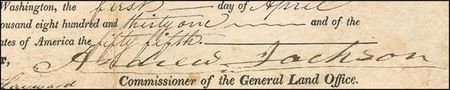 Washington, the first day of April
ousand eight hundred and thirty one and of the
tes of America the fifty fifth.
Andrew Jackson
Hayward
Commissioner of the General Land Office.